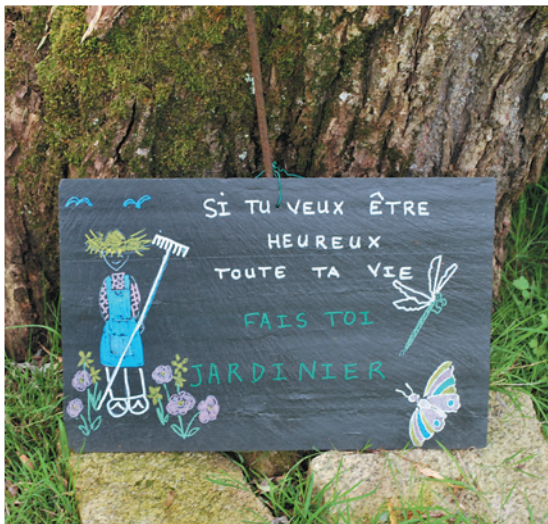 SI TU VEUX ÊTRE
HEUREUX
TOUTE TA VIE
FAIS TOI
JARDINIER